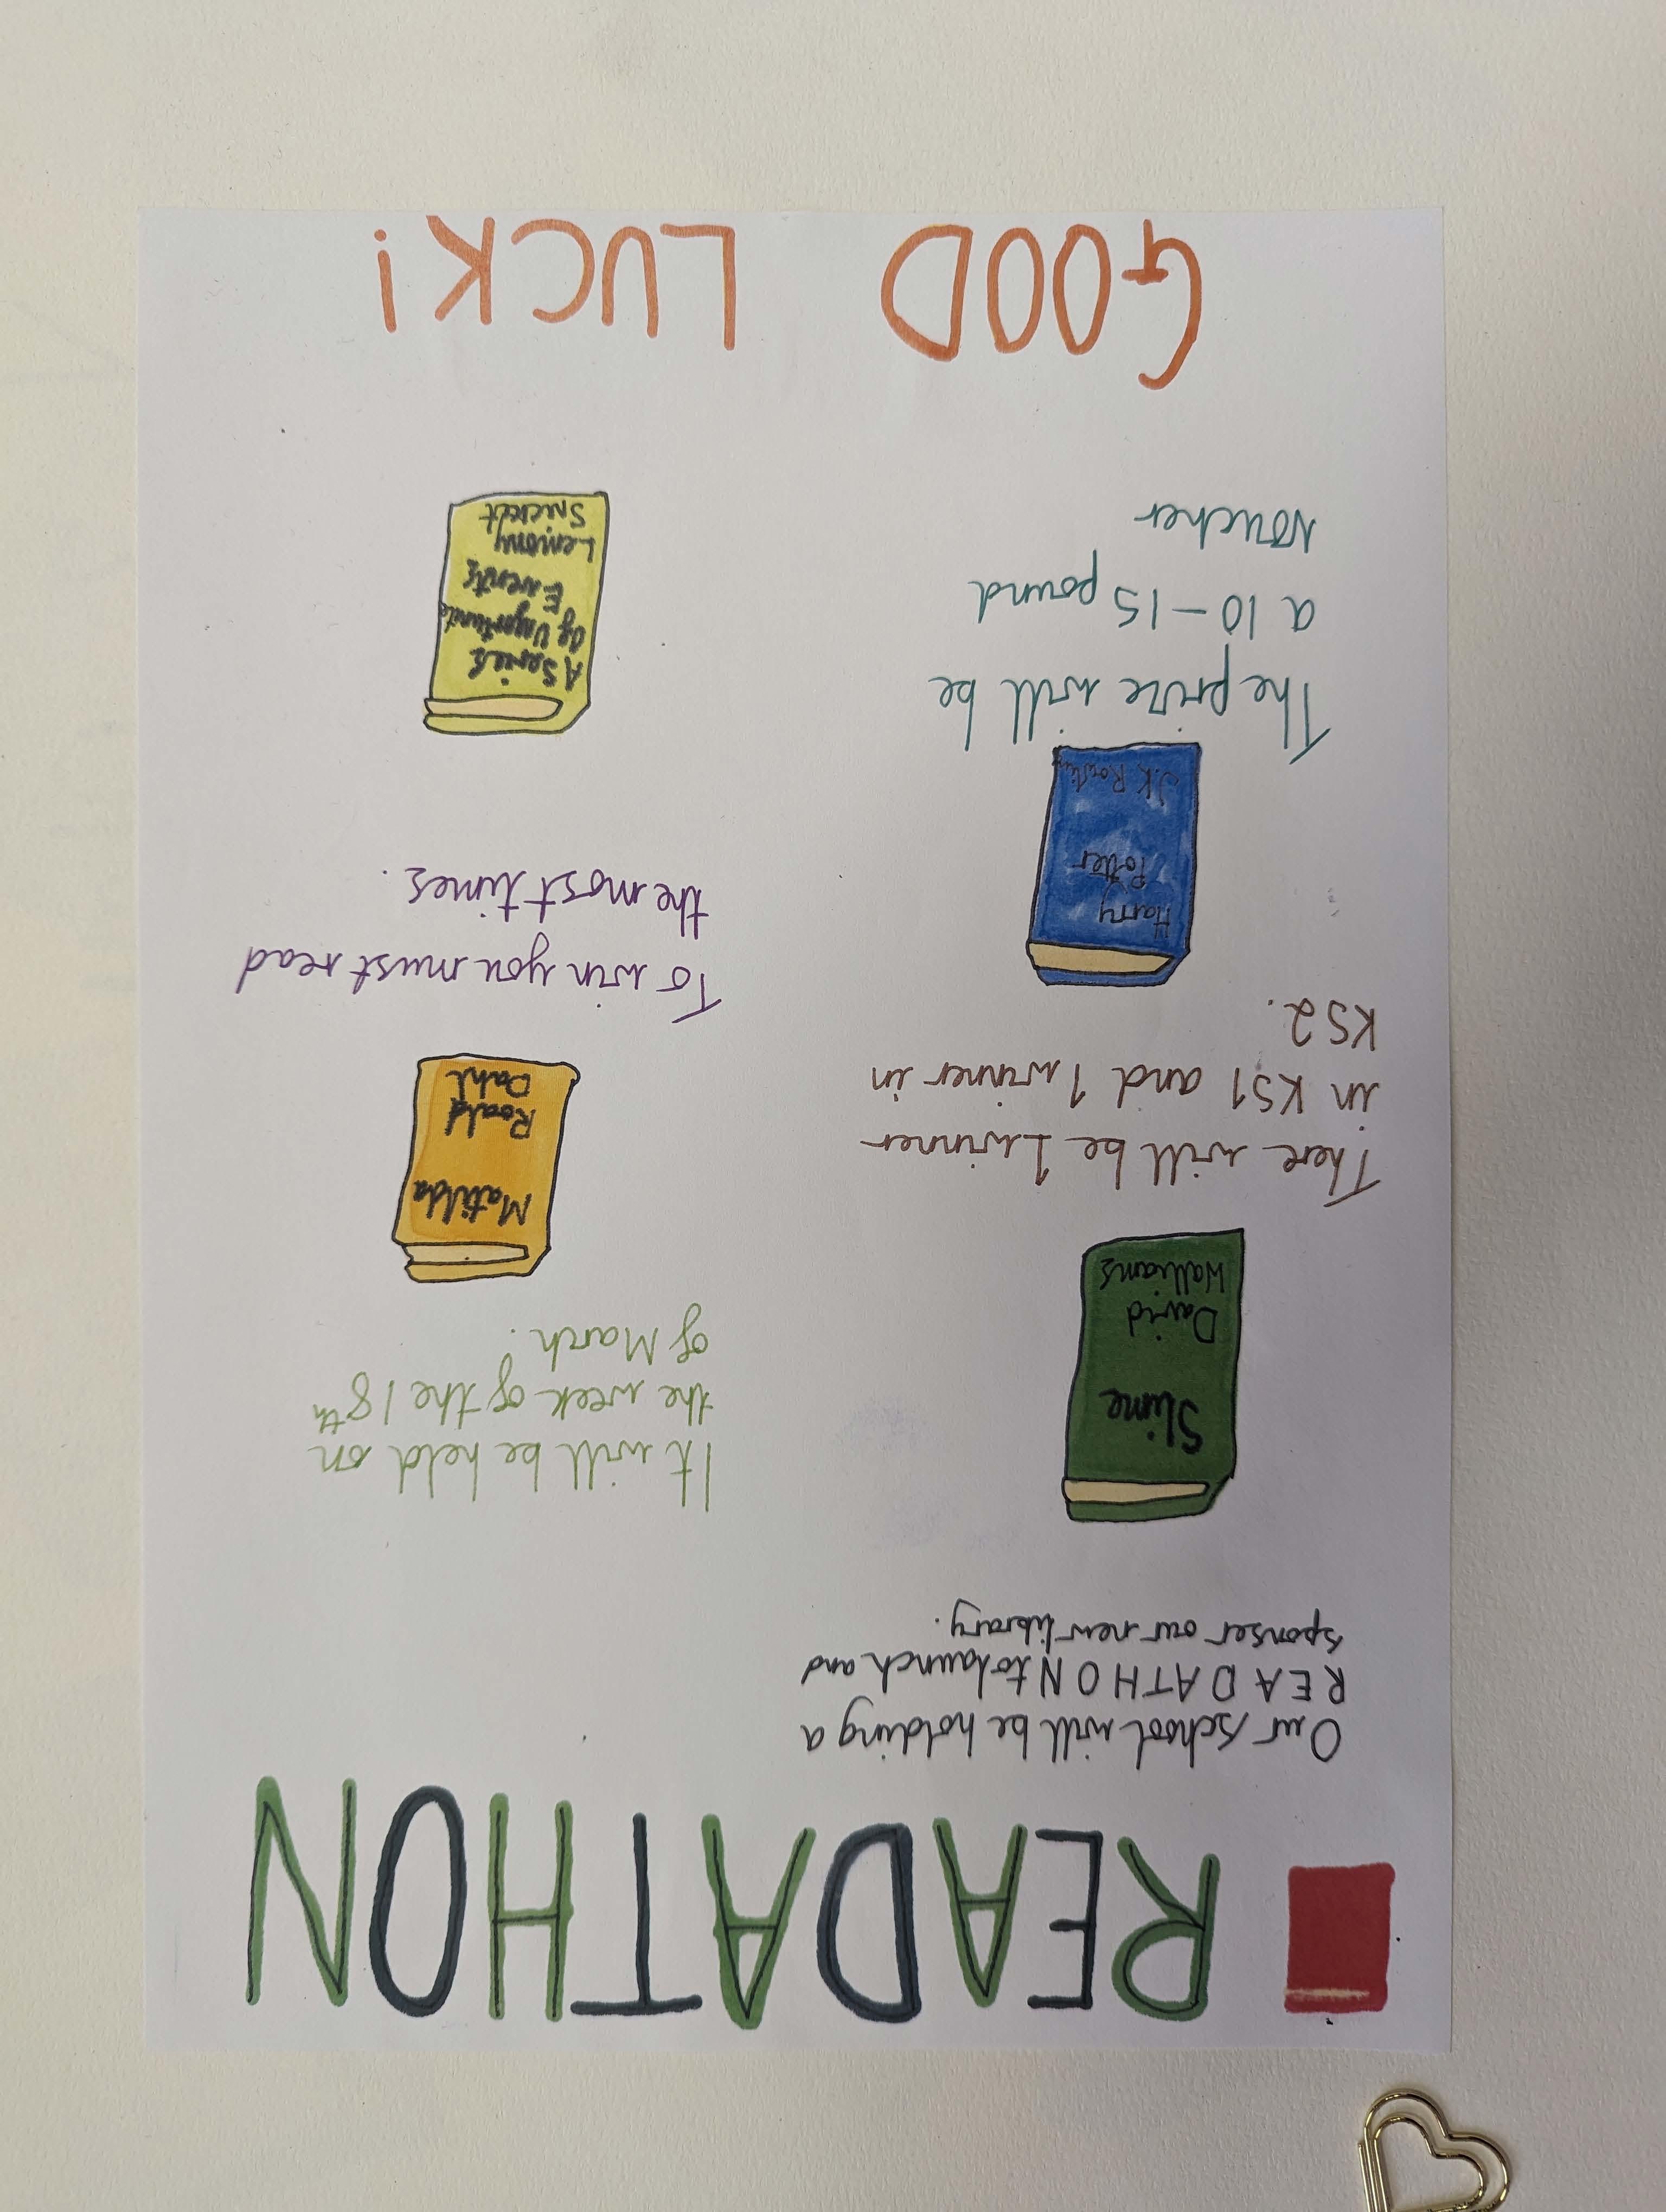 READATHON
Our school will be holding a
READATHON to launch and
sponser our new library.
Slime
David
Walliams
It will be held on
the week of the 18th
of March.
Matilda
Roald
Dahl
There will be 1 winner
in KS1 and 1 winner in
KS2.
Harry
Potter
J.K Rowling
To win you must read
the most times.
The prize will be
a 10-15 pound
voucher
A Series
Of Unfortunate
Events
Lemony
Snicket
GOOD LUCK!